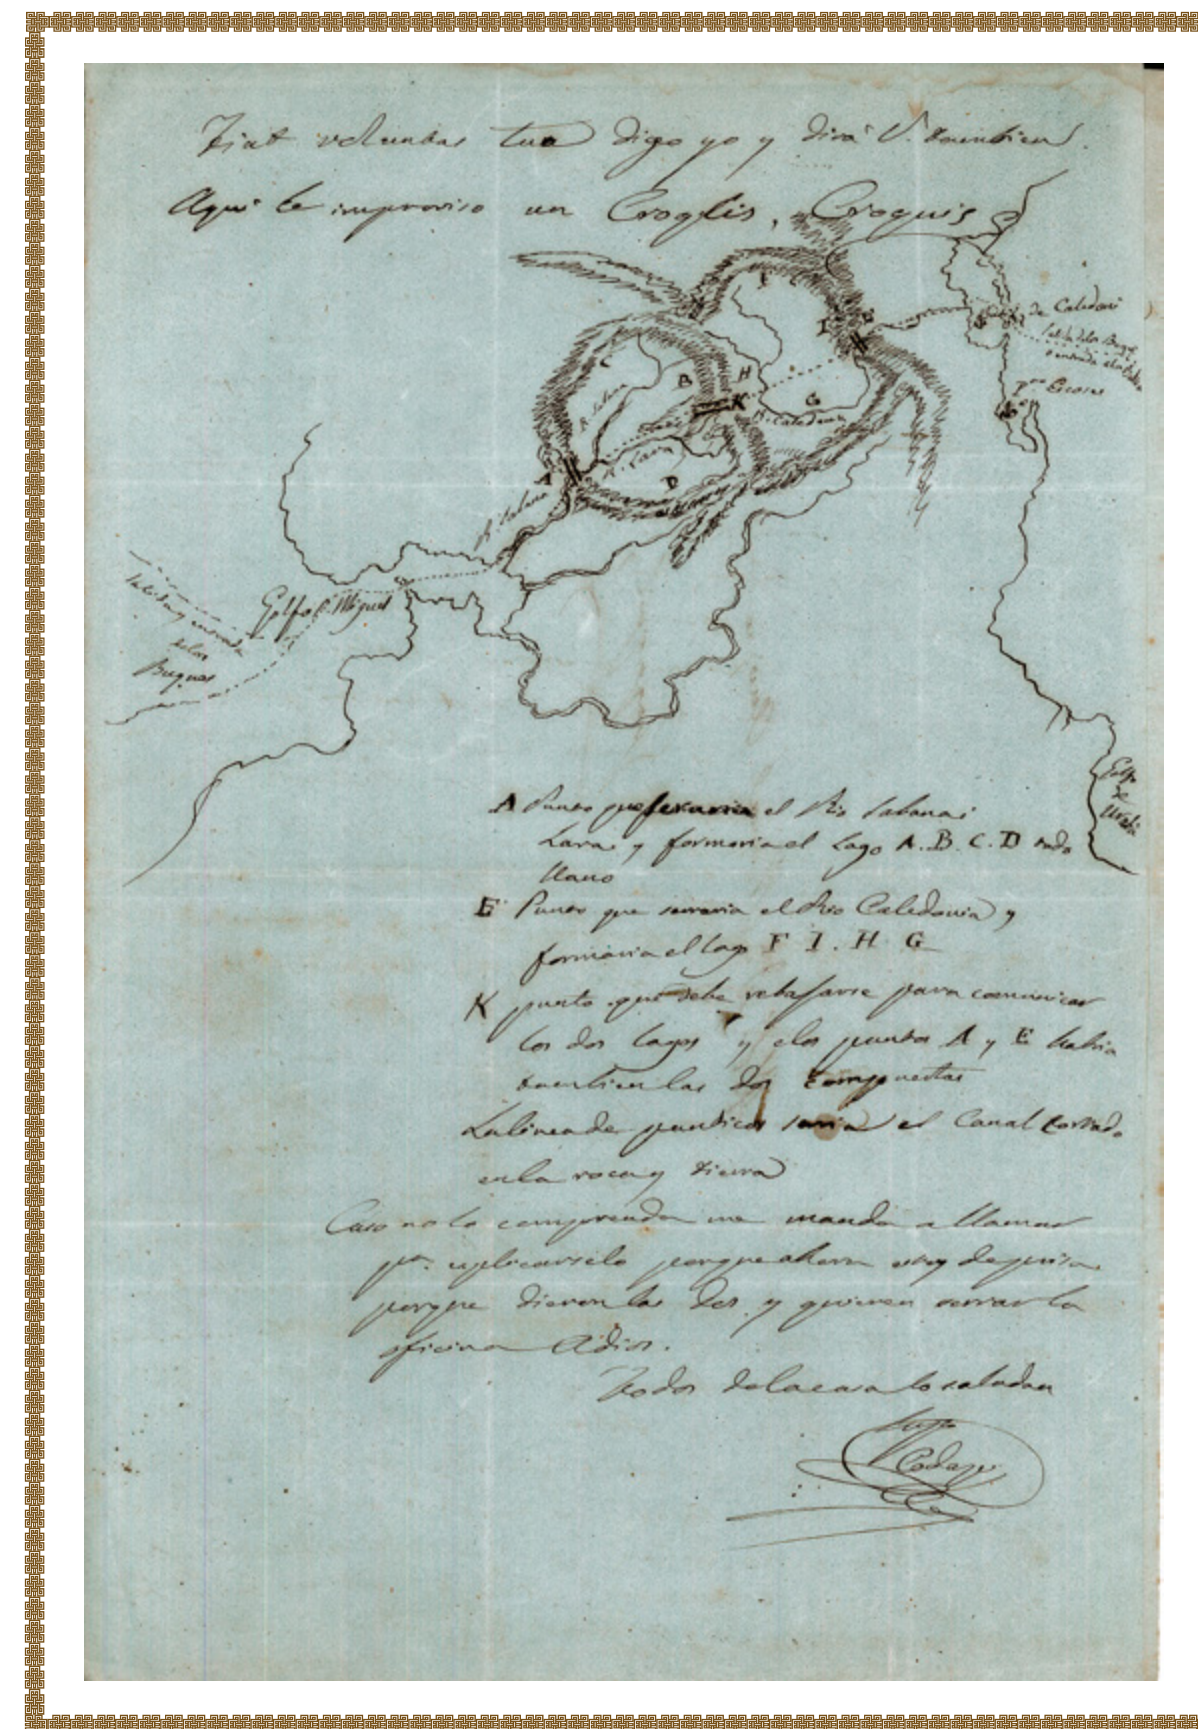 Fiat voluntas tua digo yo y dirá V. tambien.
Aqui le improviso un Croqlis, Croquis
F
C
B
H
I
E
G
K
A
D
R. Sabana
R. Lara
R. Caledonia
R. Sabana
de Caledoni
Salida de los Buqu
o entrada
pto Escoses
Golfo S. Miguel
Salida y entrada
de los
Buques
Golfo
de
Urabá
A Punto que serraria el Rio Sabana i
Lara y formaria el Lago A. B. C. D todo
llano
E Punto que serraria el Rio Caledonia y
formaria el lago F I. H G
K punto que debe rebajarse para comunicar
los dos lagos y en los puntos A y E habria
tambien las dos compuertas
La linea de punticos seria el Canal cortado
en la roca y tierra
Caso no lo comprenda me manda a llamar
pa. esplicarselo porque ahora estoy de prisa
porque dieron las dos y quieren serrar la
oficina Adios.
Todos de la casa lo saludan
Suyo
Codazzi